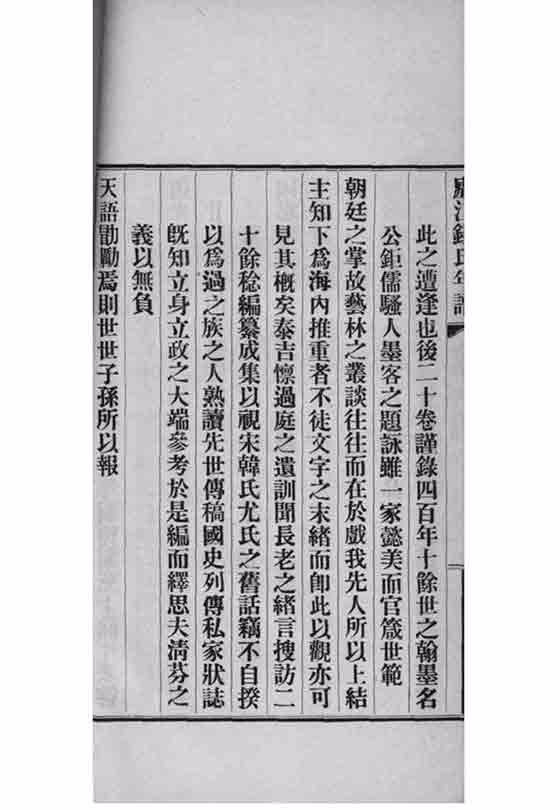 錢氏年譜
此之遭逢也後二十卷謹錄四百年十餘世之翰墨名
公鉅儒騷人墨客之題詠雖一家懿美而官箴世範
朝廷之掌故藝林之叢談往往而在於戲我先人所以上結
主知下爲海內推重者不徒文字之末緒而卽此以觀亦可
見其概矣泰吉懍過庭之遺訓聞長老之緒言搜訪二
十餘稔編纂成集以視宋韓氏尤氏之舊話竊不自揆
以爲過之族之人熟讀先世傳稿國史列傳私家狀誌
旣知立身立政之大端參考於是編而繹思夫淸芬之
義以無負
天語勖勵焉則世世子孫所以報